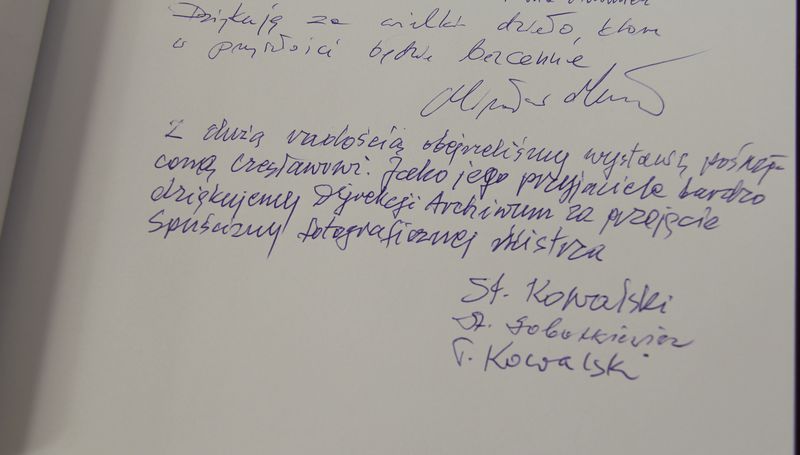 Dziękują za wielkie dzieło, które
w przyszłości będzie bezcenne
Z dużą radością obejrzeliśmy wystawę poświę-
coną Czesławowi. Jako jego przyjaciele bardzo
dziękujemy Dyrekcji Archiwum za przejęcie
Spuścizny fotograficznej Mistrza
St. Kowalski
T. Kowalski